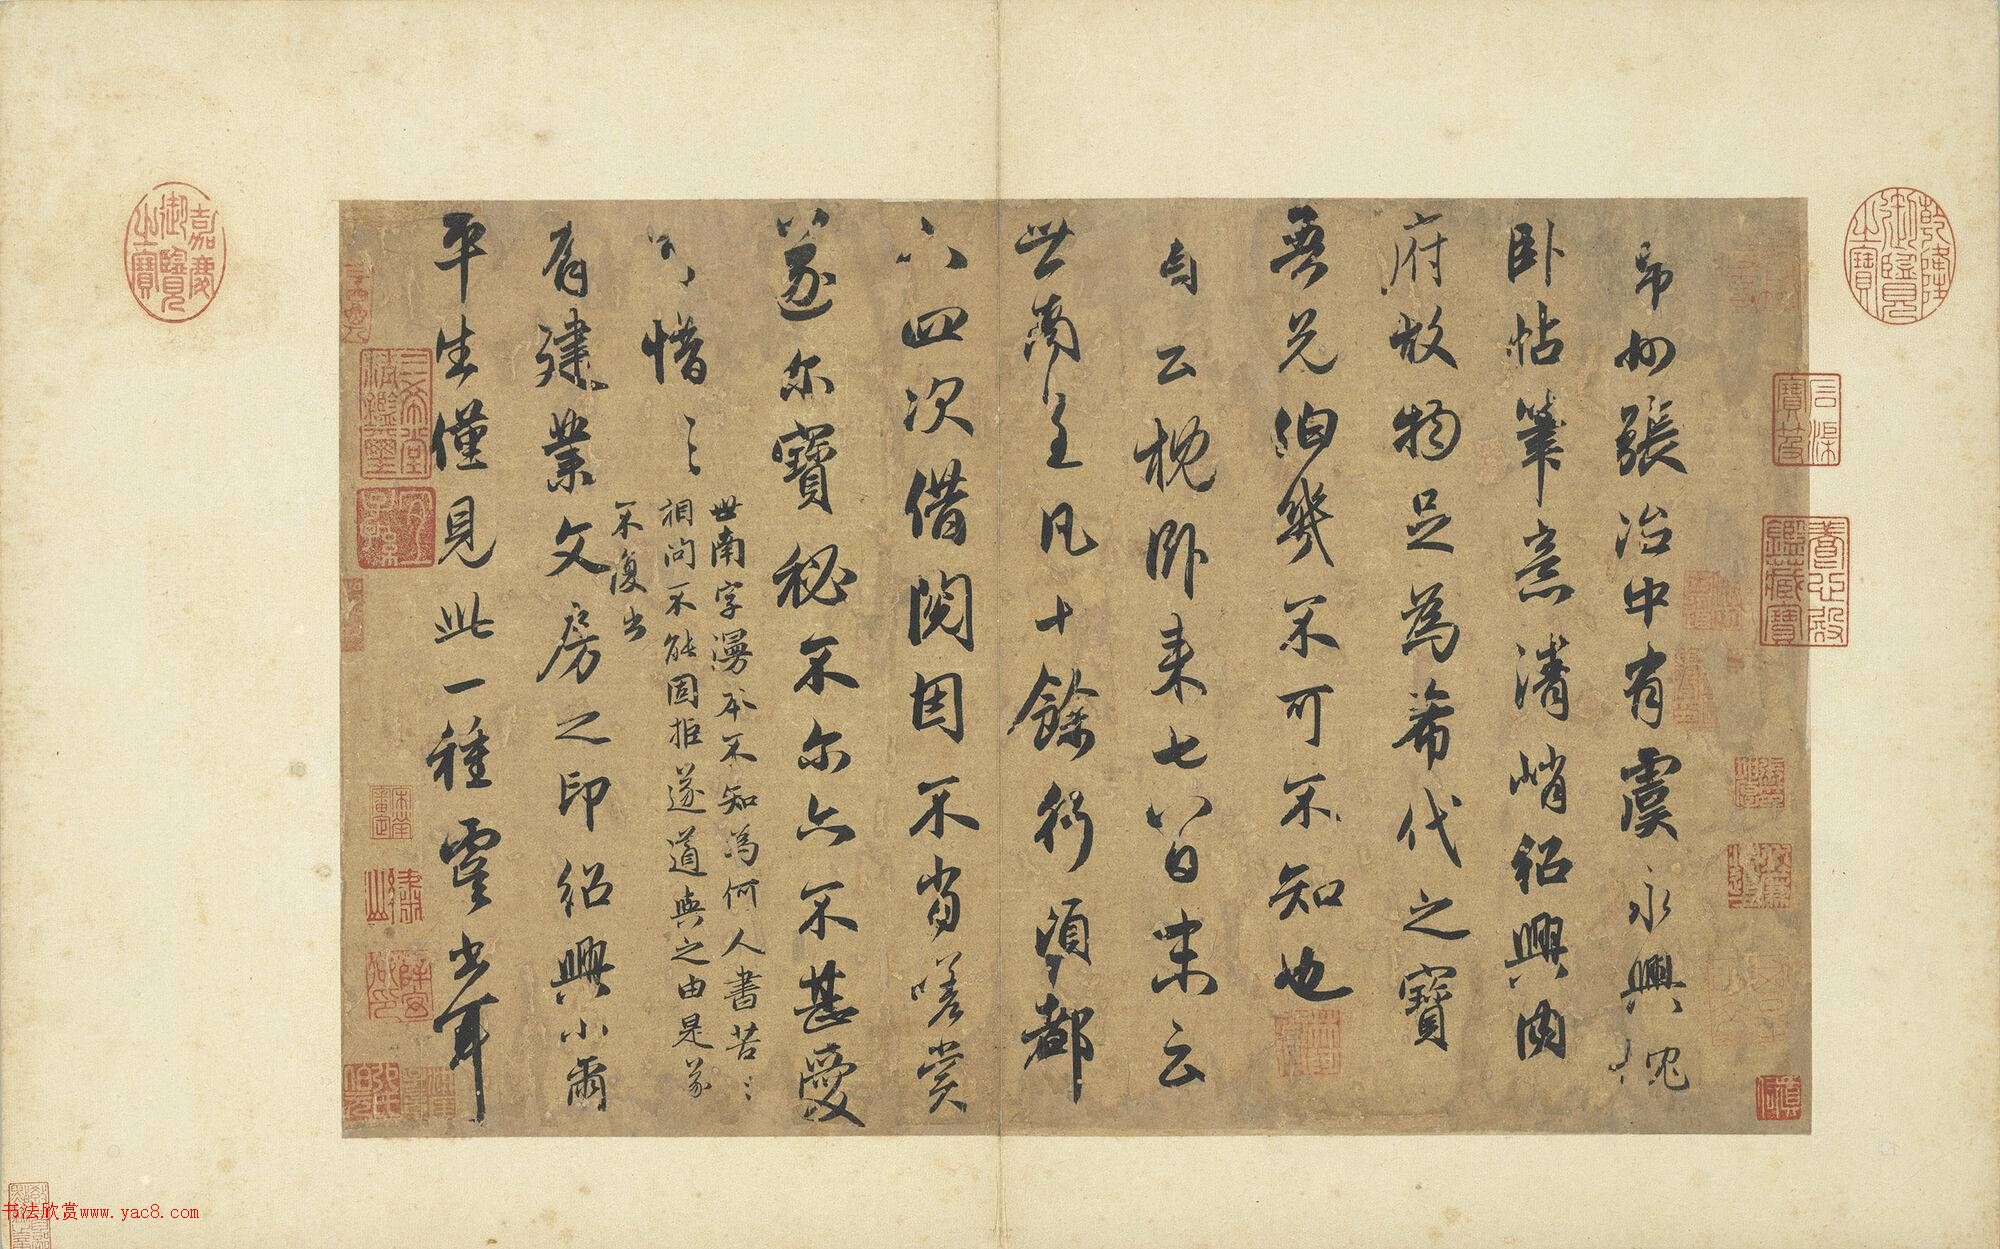 帋勿張治中有虞永興枕
卧帖筆意清峭紹興内
府故物足為希代之寶
無兄伯幾不可不知也
云枕卧来七八日末云
世南至凡十餘行須都
六四次借閲因不当嗟赏
遂尔寶秘不尔亦不甚愛
惜〻
世南字漫本不知為何人書苦〻
相问不能固拒遂道与之由是遂
不復出
有建業文房之印紹興小璽
平生僅見此一種虞書耳
嘉慶御覽之寶
乾隆御覽之寶
養心殿鑑藏寶
石渠寶笈
三希堂精鑑璽
宜子孫
书法欣赏www.yac8.com